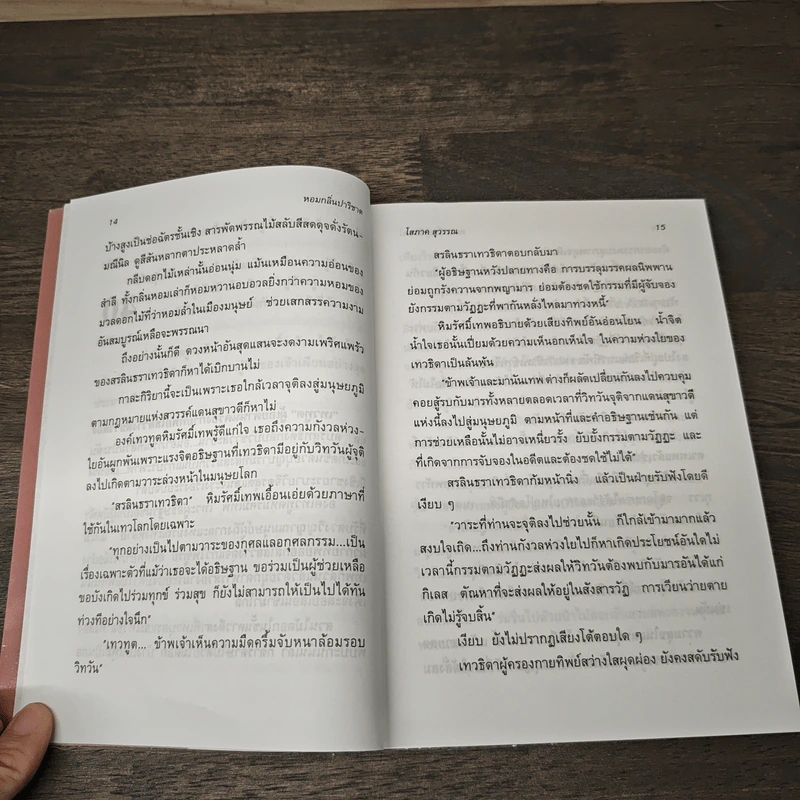 14
หอมกลิ่นปาริชาต
บ้างสูงเป็นช่อฉัตรชั้นเชิง สารพัดพรรณไม้สลับสีสดดุจดั่งรัตน-
มณีนิล ดูสีสันหลากตาประหลาดล้ำ
กลีบดอกไม้เหล่านั้นอ่อนนุ่ม แม้นเหมือนความอ่อนของ
สำลี ทั้งกลิ่นหอมเล่าก็หอมหวานอบอวลยิ่งกว่าความหอมของ
มวลดอกไม้ที่ว่าหอมล้ำในเมืองมนุษย์ ช่วยเสกสรรความงาม
อันสมบูรณ์เหลือจะพรรณนา
ถึงอย่างนั้นก็ดี ดวงหน้าอันสุดแสนจะงดงามเพริศแพร้ว
ของสรลินธราเทวธิดาก็หาได้เบิกบานไม่
กาละกิริยานี้จะเป็นเพราะเธอใกล้เวลาจุติลงสู่มนุษยภูมิ
ตามกฎหมายแห่งสวรรค์แดนสุขาวดีก็หาไม่
องค์เทวทูตหิมรัศมิ์เทพรู้ดีแก่ใจ เธอถึงความกังวลห่วง-
ใยอันผูกพันเพราะแรงจิตอธิษฐานที่เทวธิดามีอยู่กับวิทวันผู้จุติ
ลงไปเกิดตามวาระล่วงหน้าในมนุษยโลก
"สรลินธราเทวธิดา" หิมรัศมิ์เทพเอื้อนเอ่ยด้วยภาษาที่
ใช้กันในเทวโลกโดยเฉพาะ
"ทุกอย่างเป็นไปตามวาระของกุศลแลอกุศลกรรม...เป็น
เรื่องเฉพาะตัวที่แม้ว่าเธอจะได้อธิษฐาน ขอร่วมเป็นผู้ช่วยเหลือ
ขอบังเกิดไปร่วมทุกข์ ร่วมสุข ก็ยังไม่สามารถให้เป็นไปได้ทัน
ท่วงทีอย่างใจนึก"
"เทวทูต... ข้าพเจ้าเห็นความมืดครึ้มจับหนาล้อมรอบ
วิทวัน"
โสภาค สุวรรณ
15
สรลินธราเทวธิดาตอบกลับมา
"ผู้อธิษฐานหวังปลายทางคือ การบรรลุมรรคผลนิพพาน
ย่อมถูกรังควานจากพญามาร ย่อมต้องชดใช้กรรมที่มีผู้จับจอง
ยังกรรมตามวัฏฏะที่พากันหลั่งไหลมาทวงหนี้"
หิมรัศมิ์เทพอธิบายด้วยเสียงทิพย์อันอ่อนโยน น้ำจิต
น้ำใจเธอนั้นเปี่ยมด้วยความเห็นอกเห็นใจ ในความห่วงใยของ
เทวธิดาเป็นล้นพ้น
"ข้าพเจ้าและมานันเทพต่างก็ผลัดเปลี่ยนกันลงไปควบคุม
คอยสู้รบกับมารทั้งหลายตลอดเวลาที่วิทวันจุติจากแดนสุขาวดี
แห่งนี้ลงไปสู่มนุษยภูมิ ตามหน้าที่และคำอธิษฐานเช่นกัน แต่
การช่วยเหลือนั้นไม่อาจเหนี่ยวรั้ง ยับยั้งกรรมตามวัฏฏะ และ
ที่เกิดจากการจับจองในอดีตและต้องชดใช้ไม่ได้"
สรลินธราเทวธิดาก้มหน้านิ่ง แล้วเป็นฝ่ายรับฟังโดยดี
เงียบ ๆ
"วาระที่ท่านจะจุติลงไปช่วยนั้น ก็ใกล้เข้ามามากแล้ว
สงบใจเถิด...ถึงท่านกังวลห่วงใยไปก็หาเกิดประโยชน์อันใดไม่
เวลานี้กรรมตามวัฏฏะส่งผลให้วิทวันต้องพบกับมารอันได้แก่
กิเลส ตัณหาที่จะส่งผลให้อยู่ในสังสารวัฏ การเวียนว่ายตาย
เกิดไม่รู้จบสิ้น"
เงียบ ยังไม่ปรากฏเสียงโต้ตอบใด ๆ
เทวธิดาผู้ครองกายทิพย์สว่างใสผุดผ่อง ยังคงสดับรับฟัง